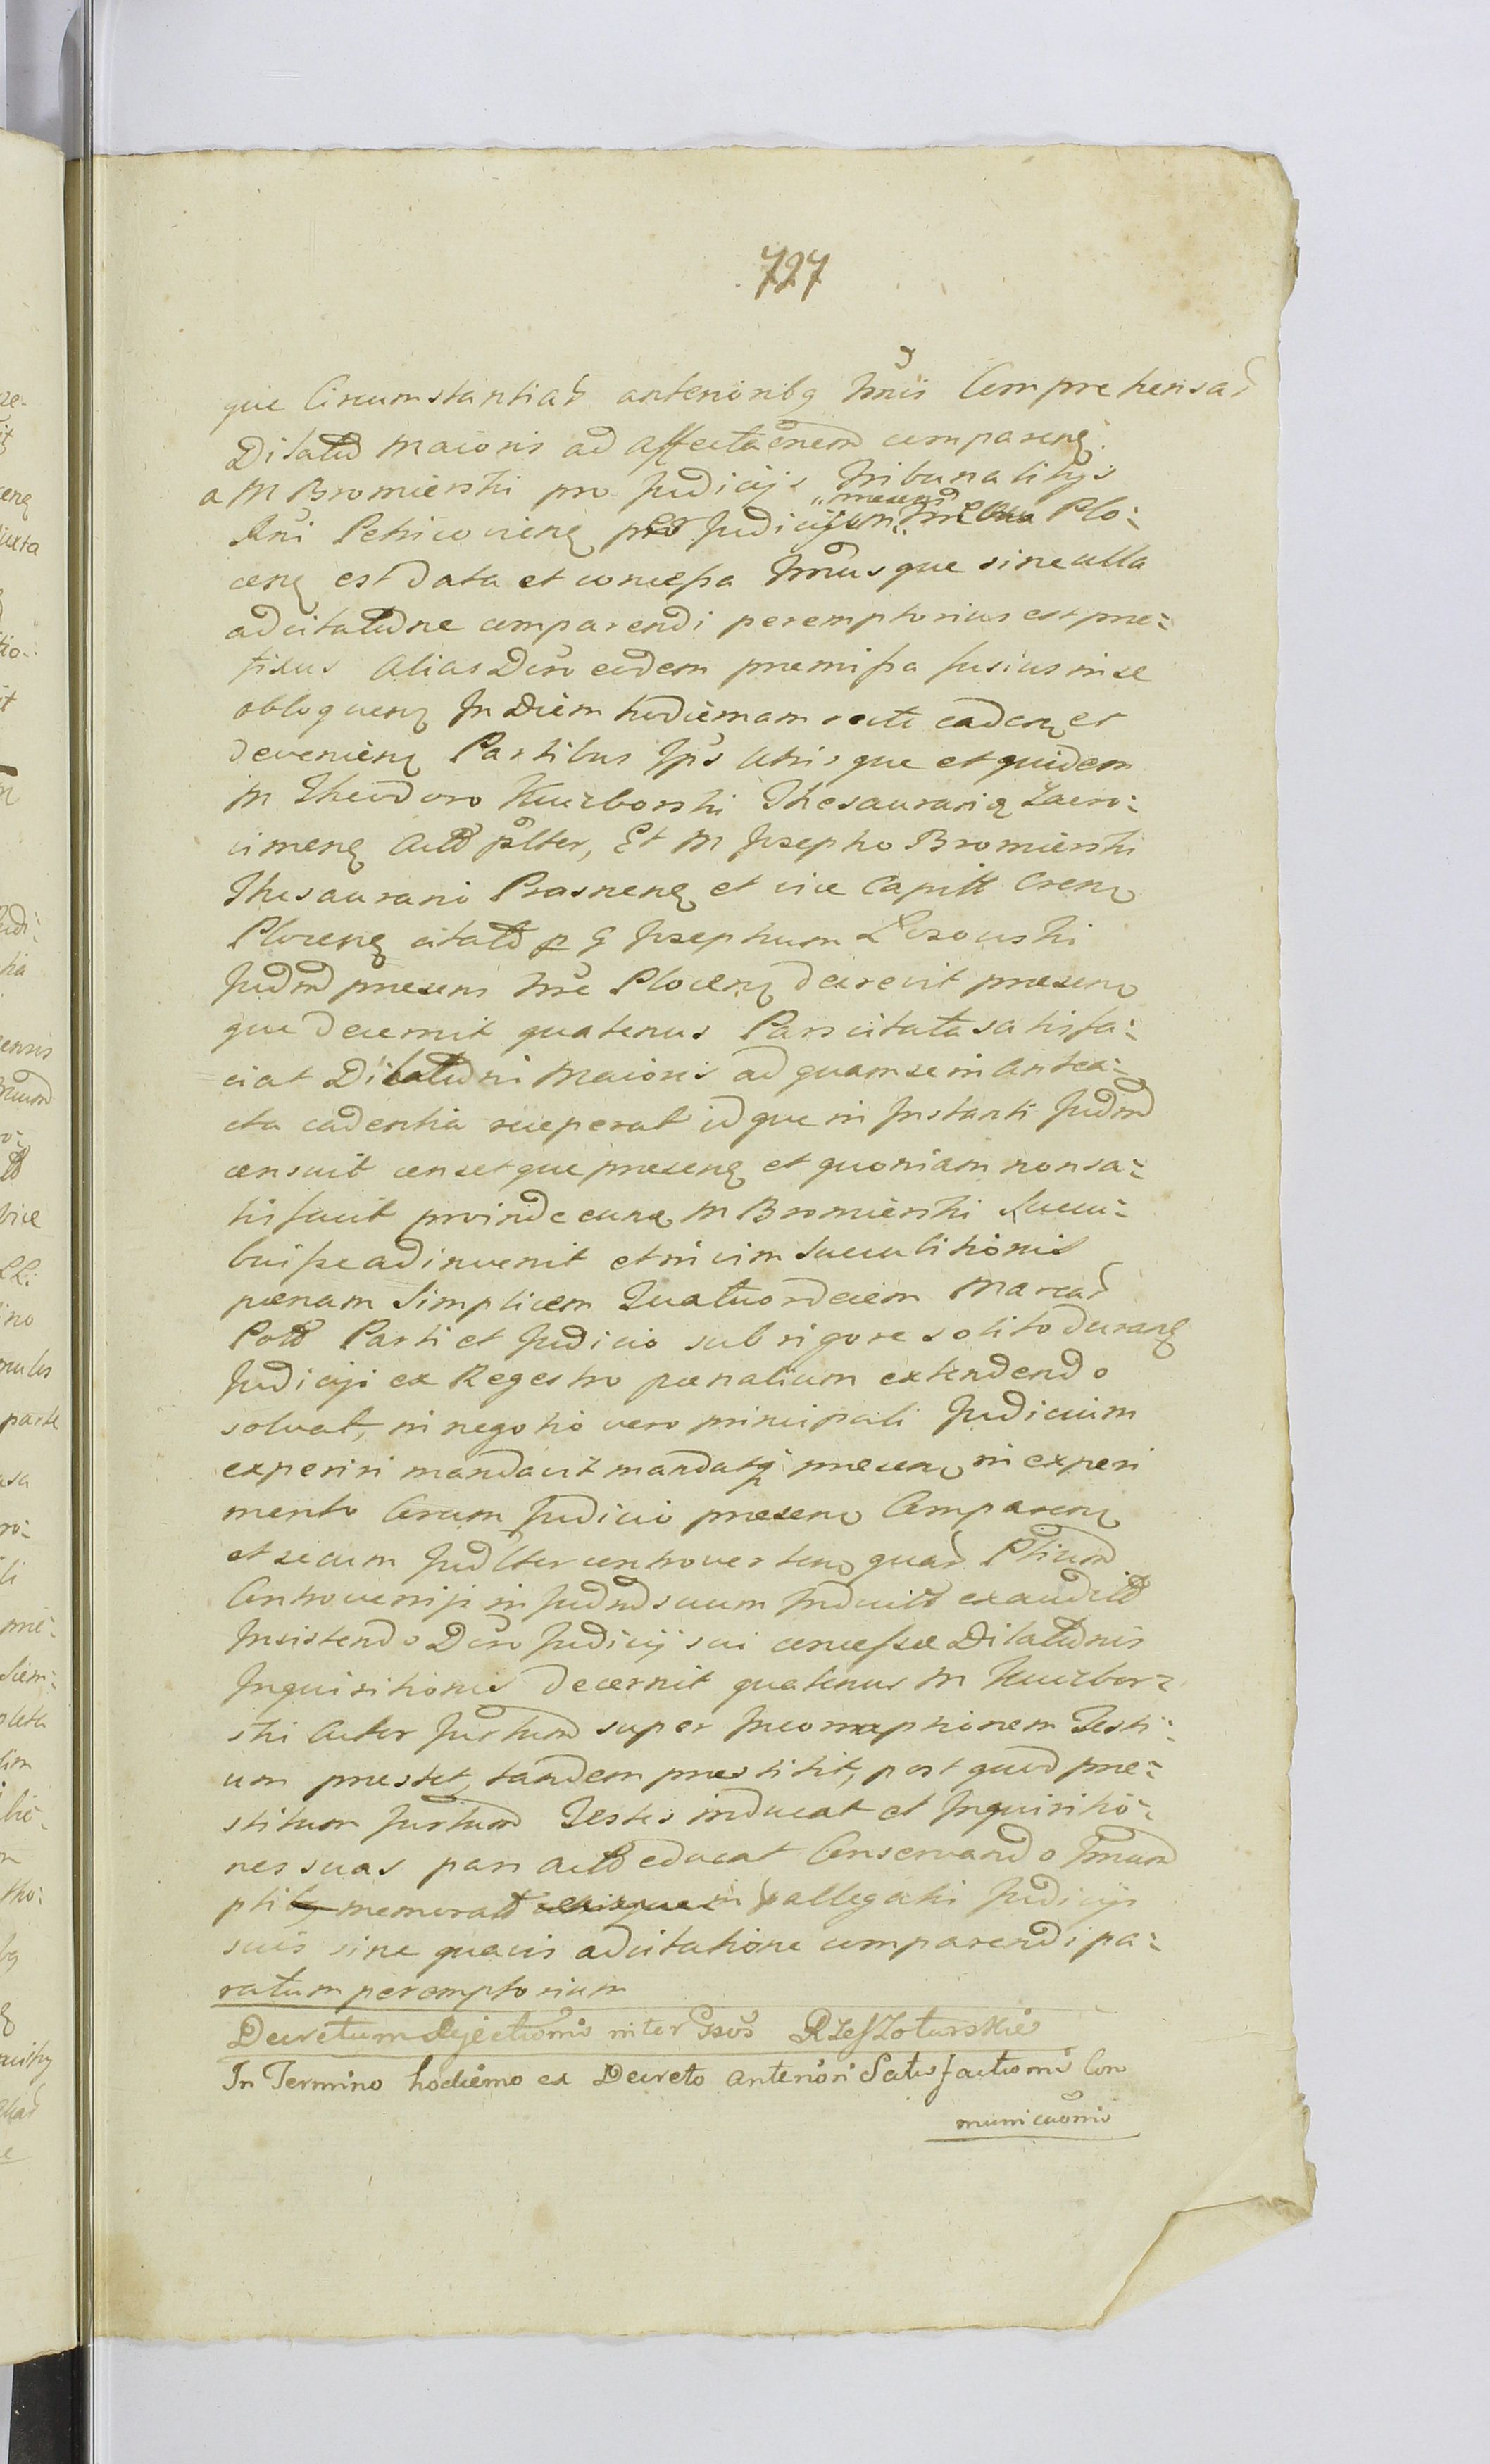 727
que Circumstantias anterioribq Tmis Comprehensas
Dilatio maioris ad affectaonem comparenq
a M Bromierski pro Judicijs Tribunalitijs
Rni Petricovienq pro Judicijs Plo-
cenq est data et concessa Tmusque sine ulla
adcitatione comparendi peremptorius est prae-
fixus alias Dcro eodem praemissa fusius in se
obloquenq In Diem hodiernam recte cadenq et
devenienq Partibus Ipis utrisque et quidem
M Theodoro Kuczborski Thesaurariq Zacro-
cimenq Actt psltter, Et M Josepho Bromierski
Thesaurario Prasnenq et vice Capitt Crenq
Plocenq citatt p G Josephum Lisowski
Judm praesens Trre Plocenq decrevit praesenq
que decernit quatenus Pars citata satisfa-
ciat Dilationi maioris ad quam se in antea-
cta cadentia receperat idque in Instanti Judm
censuit censetque praesenq et quoniam non sa-
tisfecit proinde eunq M Bromierski succu-
buisse adinvenit et in vim succubitionis
paenam simplicem Quatuordecem Marcas
Pott Parti et Judicio sub rigore solito duranq
Judicij ex Regestro paenalium extendendo
solvat, in negotio vero principali Judicium
experiri mandavit mandatq praesenq in experi
mento Coram Judicio praesenq Comparenq
et secum Judlter controvertenq quar Ptium
Controversijs in Judm suum Inductt exauditt
Insistendo Dcro Judicij sui concessae Dilationis
Inquisitionis decernit quatenus M Kuczbor-
ski Actor Jurtum super Incorruptionem Testi-
um praestet, tandem praestitit, post quod prae-
stitum Jurtum Testes inducat et Inquisitio-
nes suas pars actt educat Conservando Tmum
ptibq memoratt in pallegatis Judicijs
suis sine quavis adcitatione comparendi pa-
ratum peremptorium
Decretum Rejectionis inter Gsos Rzeszotarskie
In Termino hodierno ex Decreto anteriori Satisfactionis Com
municaonis